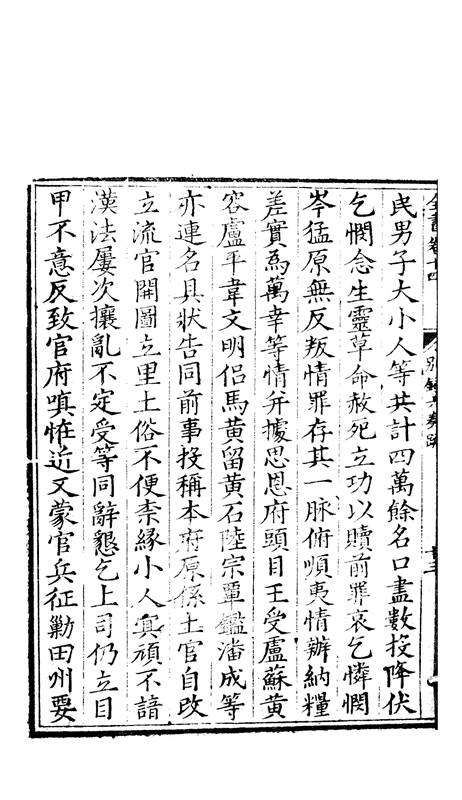 全書卷十四
別錄六奏疏
民男子大小人等共計四萬餘名口盡數投降伏
乞憫念生靈草命赦死立功以贖前罪哀乞憐憫
岑猛原無反叛情罪存其一脉俯順夷情辦納糧
差實為萬幸等情并據思恩府頭目王受盧蘇黃
容盧平韋文明侣馬黃留黃石陸宗覃鑑潘成等
亦連名具狀告同前事投稱本府原係土官自改
立流官開圖立里土俗不便柰緣小人冥頑不諳
漢法屢次攘亂不定受等同辭懇乞上司仍立目
甲不意反致官府嗔恠近又蒙官兵征勦田州要